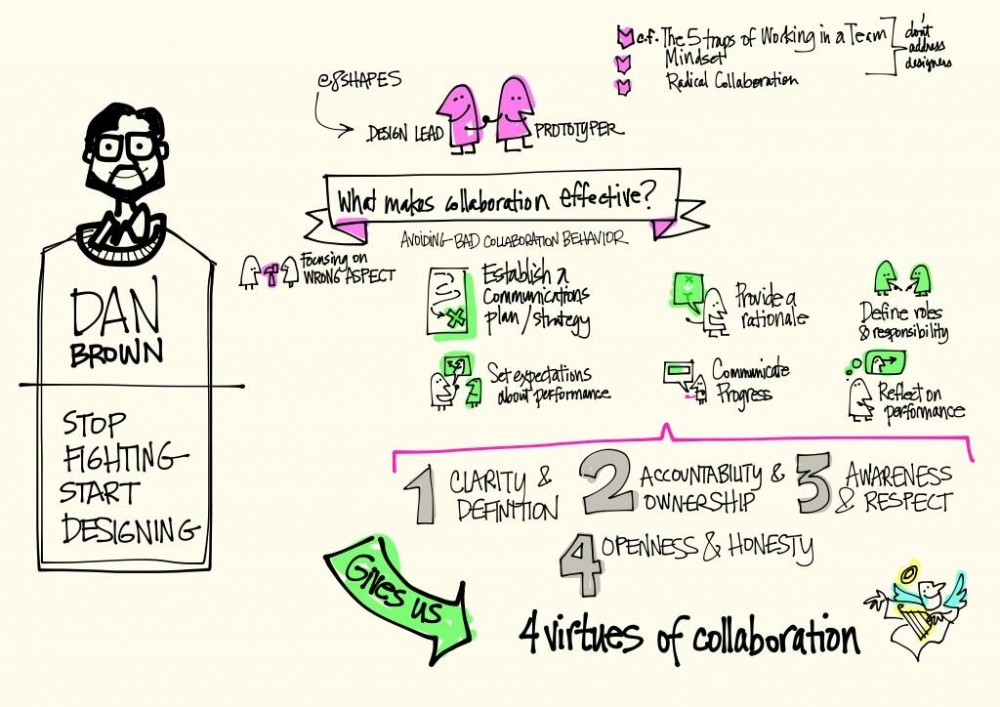 c.f. The 5 traps of Working in a Team
Mindset
Radical Collaboration
don't
address
designers
SHAPES
DESIGN LEAD
PROTOTYPER
What makes collaboration effective?
AVOIDING BAD COLLABORATION BEHAVIOR
Focusing on
WRONG ASPECT
Establish a
Communications
plan/strategy
Provide a
rationale
Define roles
& responsibility
Set expectations
about performance
Communicate
Progress
Reflect on
performance
DAN
BROWN
STOP
FIGHTING
START
DESIGNING
1 CLARITY &
DEFINITION
2 ACCOUNTABILITY &
OWNERSHIP
3 AWARENESS
& RESPECT
4 OPENNESS & HONESTY
Gives us
4 virtues of collaboration